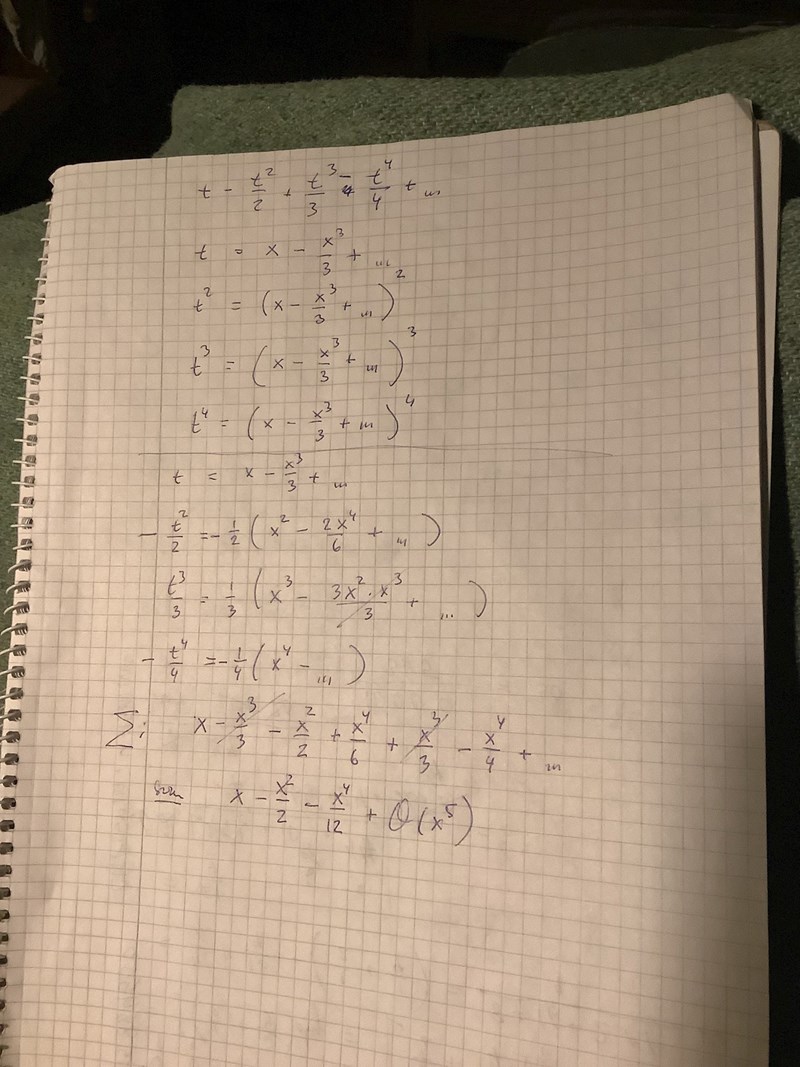 t - t²/2 + t³/3 - t⁴/4 + ...
t = x - x³/3 + ...
t² = (x - x³/3 + ...)²
t³ = (x - x³/3 + ...)³
t⁴ = (x - x³/3 + ...)⁴
t = x - x³/3 + ...
- t²/2 = -1/2 (x² - 2x⁴/6 + ...)
t³/3 = 1/3 (x³ - 3x² · x³/3 + ...)
- t⁴/4 = -1/4 (x⁴ - ...)
Σ: x - x³/3 - x²/2 + x⁴/6 + x³/3 - x⁴/4 + ...
x - x²/2 - x⁴/12 + O(x⁵)